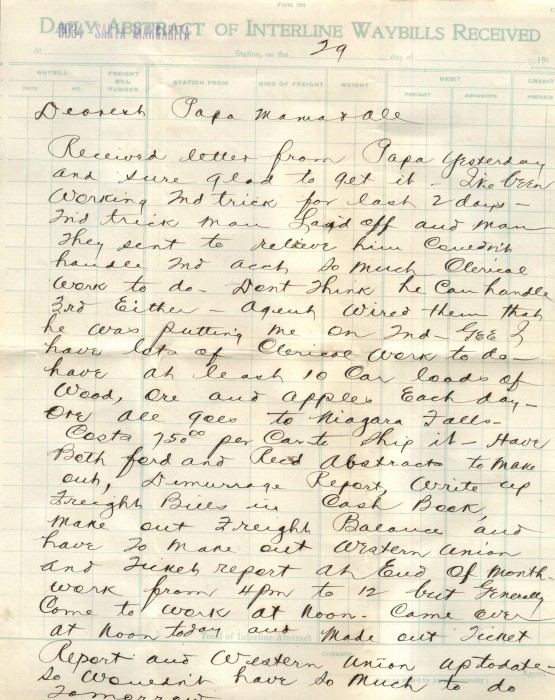 Form 309
DAILY ABSTRACT OF INTERLINE WAYBILLS RECEIVED
0034 SANTA MARGARITA
At Station, on the 29 day of 191
WAYBILL FREIGHT BILL NUMBER STATION FROM KIND OF FREIGHT WEIGHT DEBIT CREDIT
DATE NO. FREIGHT ADVANCES PREPAID
Dearest Papa Mama & Ale
Received letter from Papa yesterday
and sure glad to get it - I've been
working 2nd trick for last 2 days -
2nd trick man Laid off and man
they sent to relieve him Couldn't
handle 2nd acct so much Clerical
work to do - Dont think he Can handle
3rd Either - Agent wired them that
he was putting me on 2nd - GEE I
have lots of Clerical work to do -
have at least 10 Car loads of
Wood, ore and apples Each day -
Ore all goes to Niagara Falls -
Costs 750.00 per Car to Ship it - Have
Both ford and Recd Abstracts to make
out, Demurrage Report, Write up
Freight Bills in Cash Book,
make out Freight Balance and
have to make out Western Union
and Ticket report at End of Month
work from 4pm to 12 but Generally
Come to work at Noon - Came over
at Noon today and made out Ticket
Total of Interline Abstract
Report and Western Union uptodate -
so wouldn't have so much to do
Tomorrow